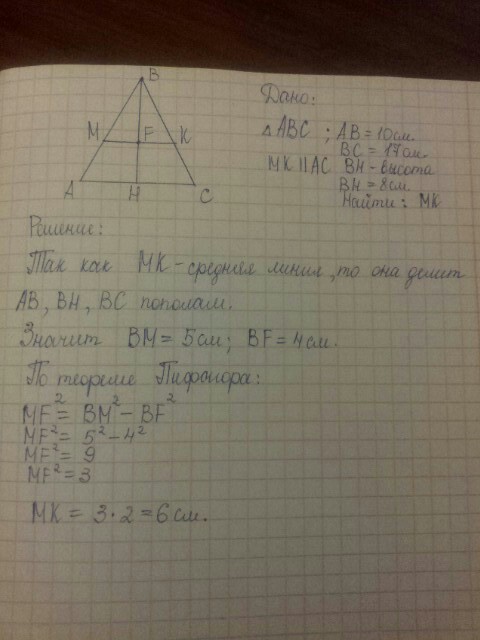 B
M F K
A H C
Дано:
△ABC ; AB = 10см.
BC = 17см.
MK || AC BH - высота
BH = 8см.
Найти: MK
Решение:
Так как MK - средняя линия, то она делит
AB, BH, BC пополам.
Значит BM = 5см; BF = 4см.
По теореме Пифагора:
MF² = BM² - BF²
MF² = 5² - 4²
MF² = 9
MF² = 3
MK = 3 · 2 = 6 см.